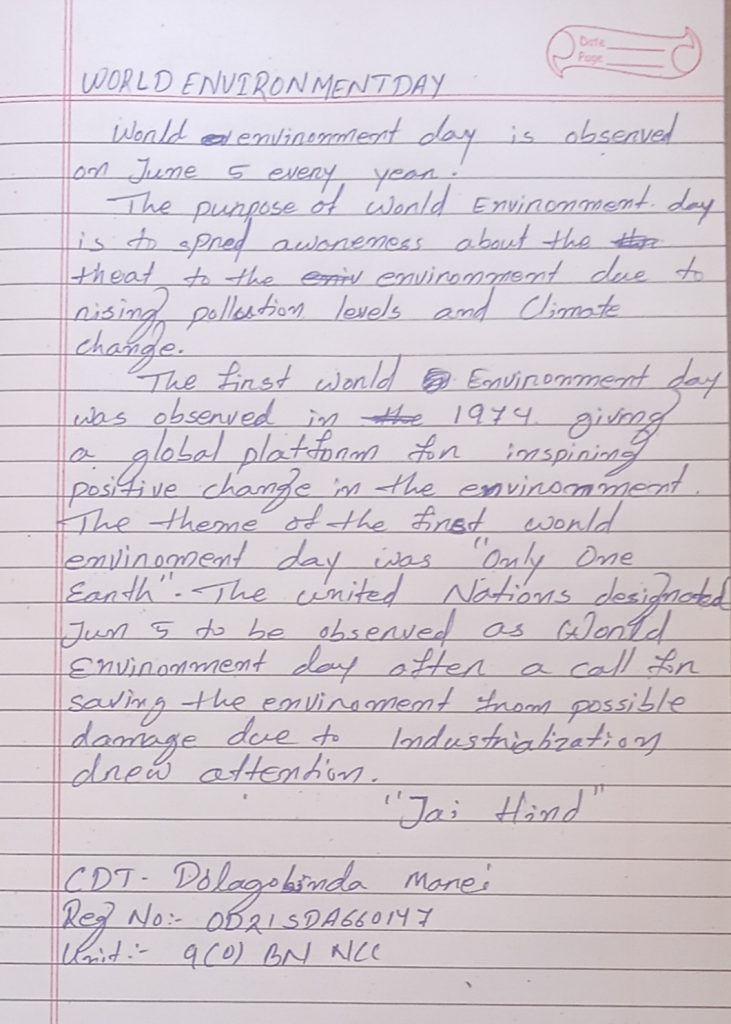 Date
Page
WORLD ENVIRONMENTDAY
World environment day is observed
on June 5 every year.
The purpose of world Environment. day
is to spred awareness about the
theat to the environment due to
rising pollution levels and Climate
change.
The first world Environment day
was observed in 1974. giving
a global platform for inspiring
positive change in the environment.
The theme of the first world
environment day was "Only One
Earth". The united Nations designated
Jun 5 to be observed as World
Environment day after a call for
saving the environment from possible
damage due to Industrialization
drew attention.
"Jai Hind"
CDT- Dolagobinda
Reg No:- OD21SDA660147
Unit:- 9(O) BN NCC